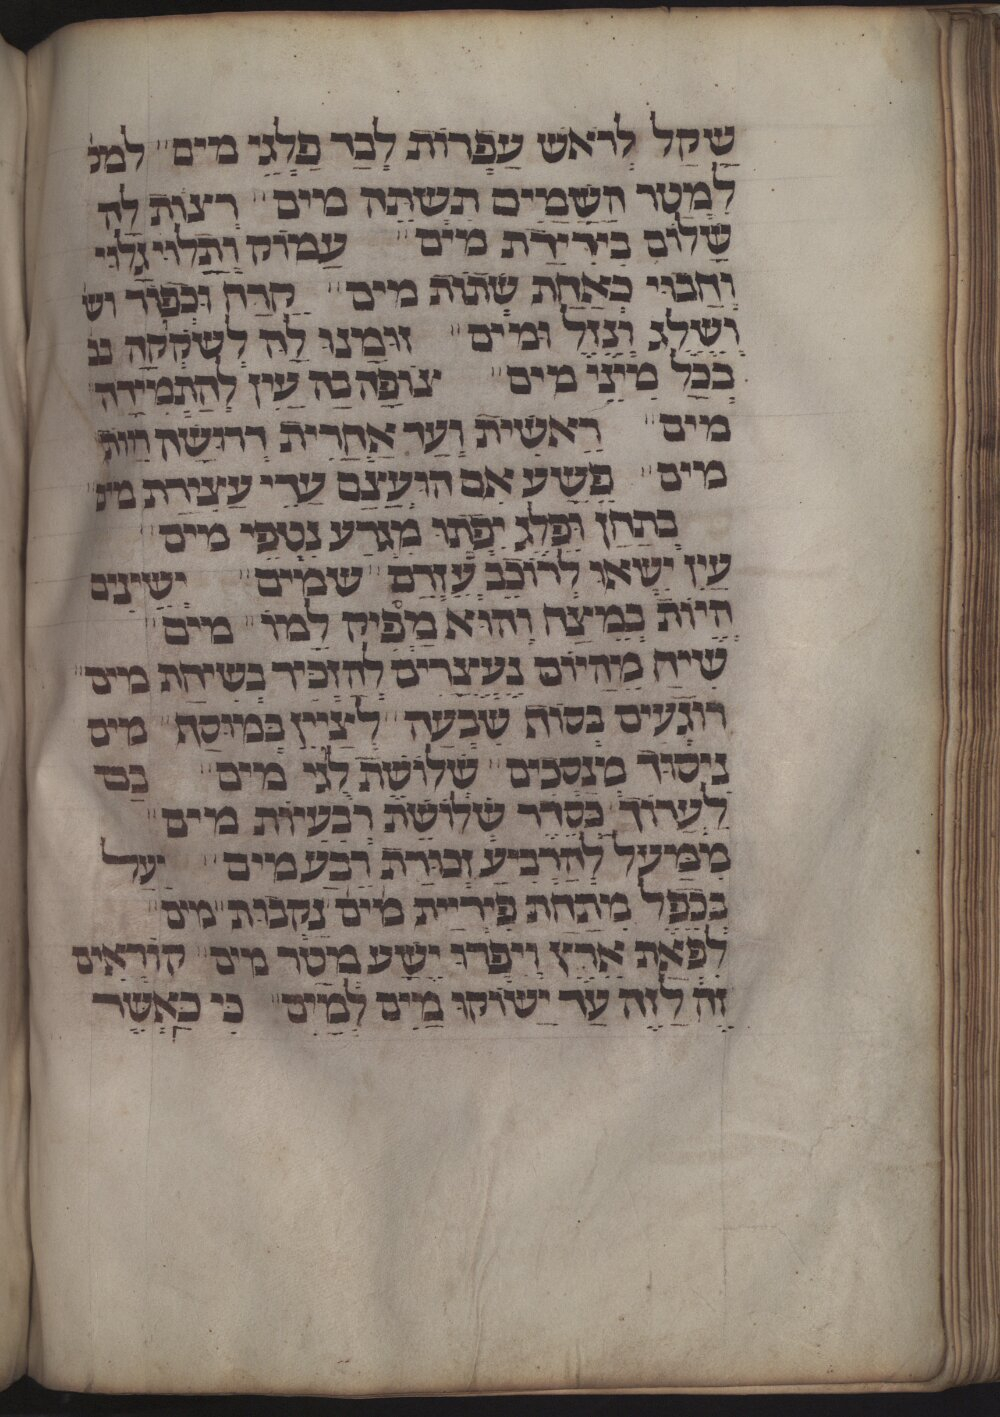 שָׁקַל לְרֹאשׁ עַפְרוֹת לְבַד פַּלְגֵי מיִם" למט
לִמְטַר הַשָּׁמַיִם תִּשְׁתֶּה מיִם" רְצוֹת לָהּ
שָׁלוֹם בִּירִידַת מיִם" עָמוֹק וְתָלוּי גָּלוּי
וְחָבוּי כְּאַחַת שָׁתוֹת מים" קֶרַח וּכְפוֹר וש
וְשֶׁלֶג וְנוֹזֵל וּמיִם" זוּמְּנוּ לָהּ לְשַׁקְּקָהּ בכ
בְּכָל מִיצֵי מיִם" צוֹפֶה בָהּ עַיִן לְהַתְמִידָהּ
מים" רֵאשִׁית וְעַד אַחֲרִית דְּרוּשָׁה חֲיוֹת
מים" פֶּשַׁע אִם הוּעֲצַם עֲדֵי עֲצִירַת מים"
בְּתַחַן וּפֶלֶג יְפַתּוּ מְגָרֵעַ נִטְפֵי מים"
עַיִן יִשְׂאוּ לְרוֹכֵב עֶזְרָם" שמִים" יְשֵׁינִים
הֱיוֹת בְּמֵיצַח וְהוּא מֵפִיק לָמוֹ" מים"
שִׂיחַ מֵהַיּוֹם נֶעֱצָרִים לְהַזְכִּיר בְּשִׂיחַת מים"
רוֹגְעִים בְּסוֹת שִׁבְעָה" לְצִיֵּין בְּמוּסַת" מים
נִיסוּךְ מְנַסְּכִים" שְׁלוֹשֶׁת לֻגֵּי מים" בם
לַעֲרוֹךְ בְּסֵדֶר שְׁלוֹשֶׁת רְבִיעִיוֹת מים"
מִמַּעַל לְהַרְבִּיעַ זְכוּרַת רֶבַע מים" יַעל
בְּכֵפֶל מִתַּחַת פִּירְיַית מיִם נְקֵבוּת" מים"
לִפְאַת אֶרֶץ וְיִפְרוּ יֶשַׁע מִטַּר מים" קוֹרְאִים
זֶה לָזֶה עַד יִשּׁוֹקוּ מַיִם לְמַיִם" כִּי כַאֲשֶׁר